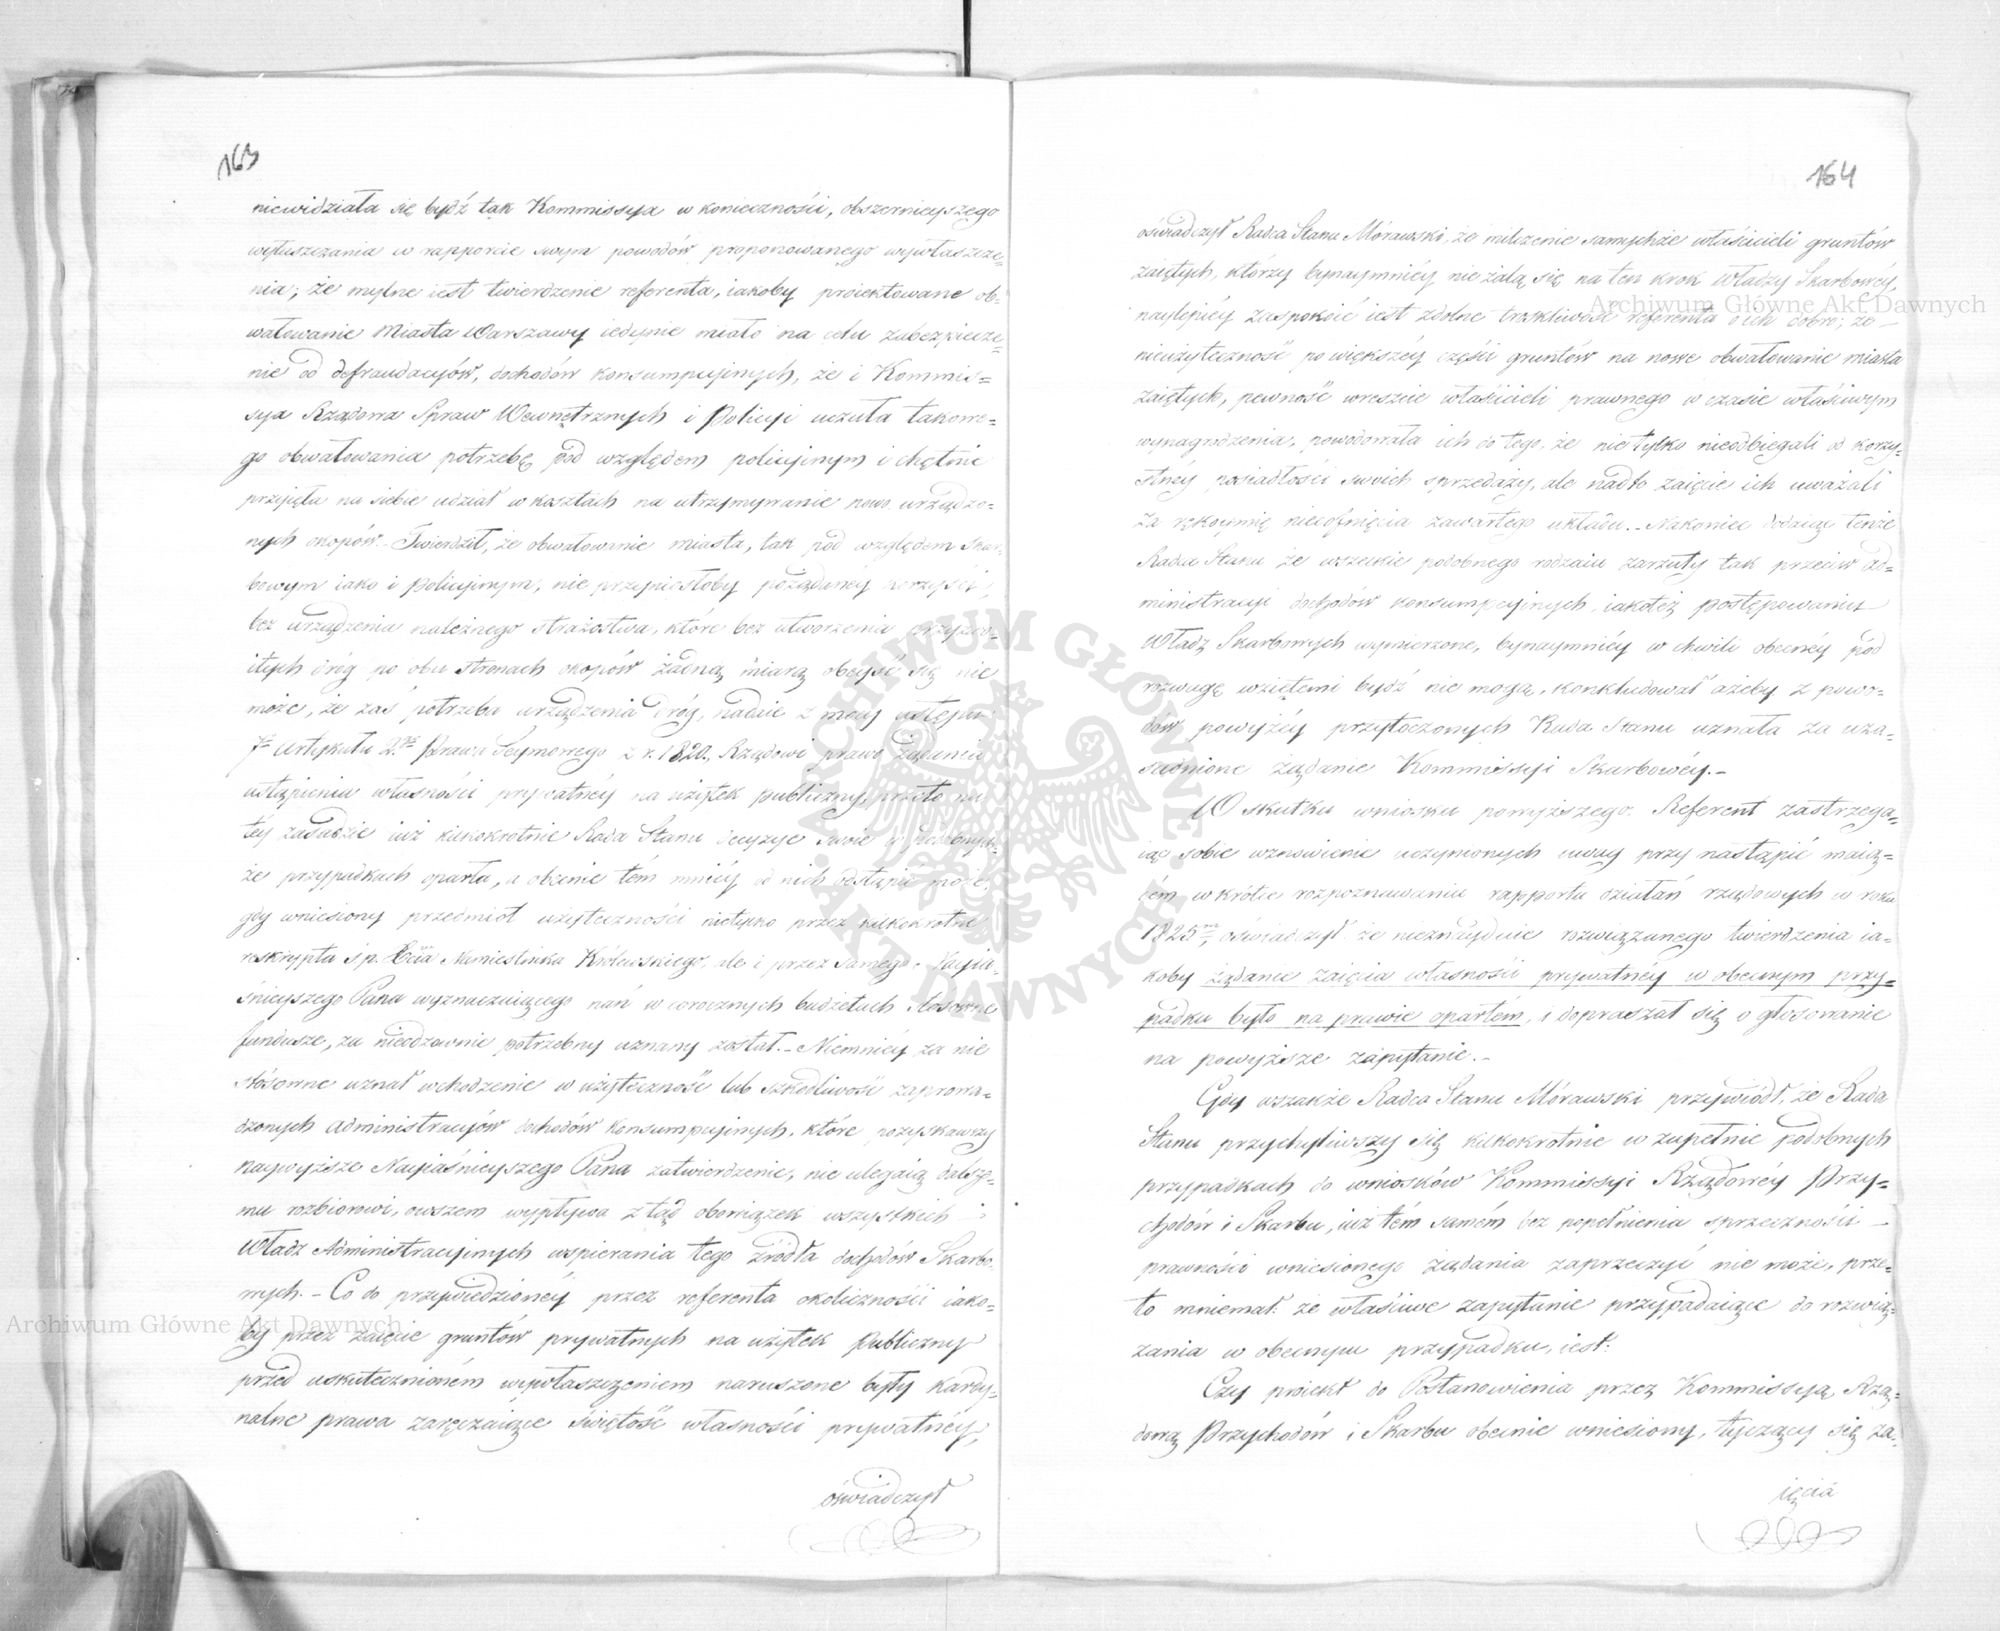 163
niewidziała się bydź tak Kommissya w konieczności, obszernieyszego
wyłuszczania w rapporcie swym powodów proponowanego wywłaszcze=
nia; że mylne iest twierdzenie referenta, iakoby proiektowane ob=
wałowanie Miasta Warszawy iedynie miało na celu zabezpiecze=
nie od defraudacyów, dochodów konsumpcyinych, że i Kommis=
sya Rządowa Spraw Wewnętrznych i Policyi uczuła takowe=
go obwałowania potrzebę pod względem policyinym i chętnie
przyięła na siebie udział w kosztach na utrzymywanie nowo urządzo=
nych okopów. Twierdził, że obwałowanie miasta, tak pod względem Skar=
bowym iako i Policyinym, nie przyniosłoby pożądanéy korzyści,
bez urządzenia należnego strażostwa, które bez utworzenia przyzwo=
itych dróg po obu stronach okopów żadną miarą obeyść się nie
może, że zaś potrzeba urządzenia dróg, nadaie z mocy ustępu
7º Artykułu 2.go Prawa Seymowego z r. 1820., Rządowi prawo żądania
ustąpienia własności prywatnéy na użytek publiczny, przeto na
téy zasadzie iuż kilkokrotnie Rada Stanu decyzye swoie w podobnych=
że przypadkach oparła, a obecnie tém mniéy od nich odstąpić może,
gdy wniesiony przedmiot użyteczności nietylko przez kilkokrotne
reskrypta ś p. Xcia Namiestnika Królewskiego, ale i przez samego Nayia=
śnieyszego Pana wyznaczaiącego nań w corocznych budżetach stosowne
fundusze, za nieodzownie potrzebny uznany został. - Niemniéy za nie
stósowne uznał wchodzenie w użyteczność lub szkodliwość zaprowa=
dzonych administracyów dochodów konsumpcyinych, które pozyskawszy
naywyższe Nayiaśnieyszego Pana zatwierdzenie, nie ulegaią dalsze=
mu rozbiorowi, owszem wypływa ztąd obowiązek wszystkich
Władz Administracyinych wspierania tego źródła dochodów Skarbo=
wych. - Co do przywiedzionéy przez referenta okoliczności iako=
by przez zaięcie gruntów prywatnych na użytek publiczny
przed uskutecznioném wywłaszczeniem naruszone były kardy=
nalne prawa zaręczaiące świętość własności prywatnéy,
oświadczył
164
oświadczył Radca Stanu Mórawski, że milczenie samychże właścicieli gruntów
zaiętych, którzy bynaymniéy nie żalą się na ten krok Władzy Skarbowéy,
naylepiéy zaspokoić iest zdolne troskliwość referenta o ich dobro; że
nieużyteczność po większéy części gruntów na nowe obwałowanie miasta
zaiętych, pewność wreszcie właścicieli prawnego w czasie właściwym
wynagrodzenia, powodowała ich do tego, że nie tylko nieodbiegali od korzy=
stnéy posiadłości swoich sprzedaży, ale nadto zaięcie ich uważali
za rękoymię niecofnięcia zawartego układu. - Nakoniec dodaiąc tenże
Radca Stanu że wszelkie podobnego rodzaiu zarzuty tak przeciw ad=
ministracyi dochodów konsumpcyinych, iakoteż postępowaniu
Władz Skarbowych wymierzone, bynaymniéy w chwili obecnéy pod
rozwagę wziętemi bydź nie mogą, konkludował ażeby z powo=
dów powyżéy przytoczonych Rada Stanu uznała za uza=
sadnione żądanie Kommissyi Skarbowéy. -
W skutku wniosku powyższego. Referent zastrzega=
iąc sobie wznowienie uczynionych uwag przy nastąpić maią=
cém wkrótce rozpoznawaniu rapportu działań rządowych w roku
1825m, oświadczył że nieznayduie rozwiązanego twierdzenia ia=
koby żądanie zaięcia własności prywatnéy w obecnym przy=
padku było na prawie opartém, i dopraszał się o głosowanie
na powyższe zapytanie. -
Gdy wszakże Radca Stanu Mórawski przywiódł, że Rada
Stanu przychyliwszy się kilkokrotnie w zupełnie podobnych
przypadkach do wniosków Kommissyi Rządowéy Przy=
chodów i Skarbu, iuż tém samém bez popełnienia sprzeczności
prawności wniesionego żądania zaprzeczyć nie może, prze=
to mniemał: że właściwe zapytanie przypadaiące do rozwią=
zania w obecnym przypadku, iest:
Czy proiekt do Postanowienia przez Kommissyą Rzą=
dową Przychodów i Skarbu obecnie wniesiony, tyczący się za=
ięcia